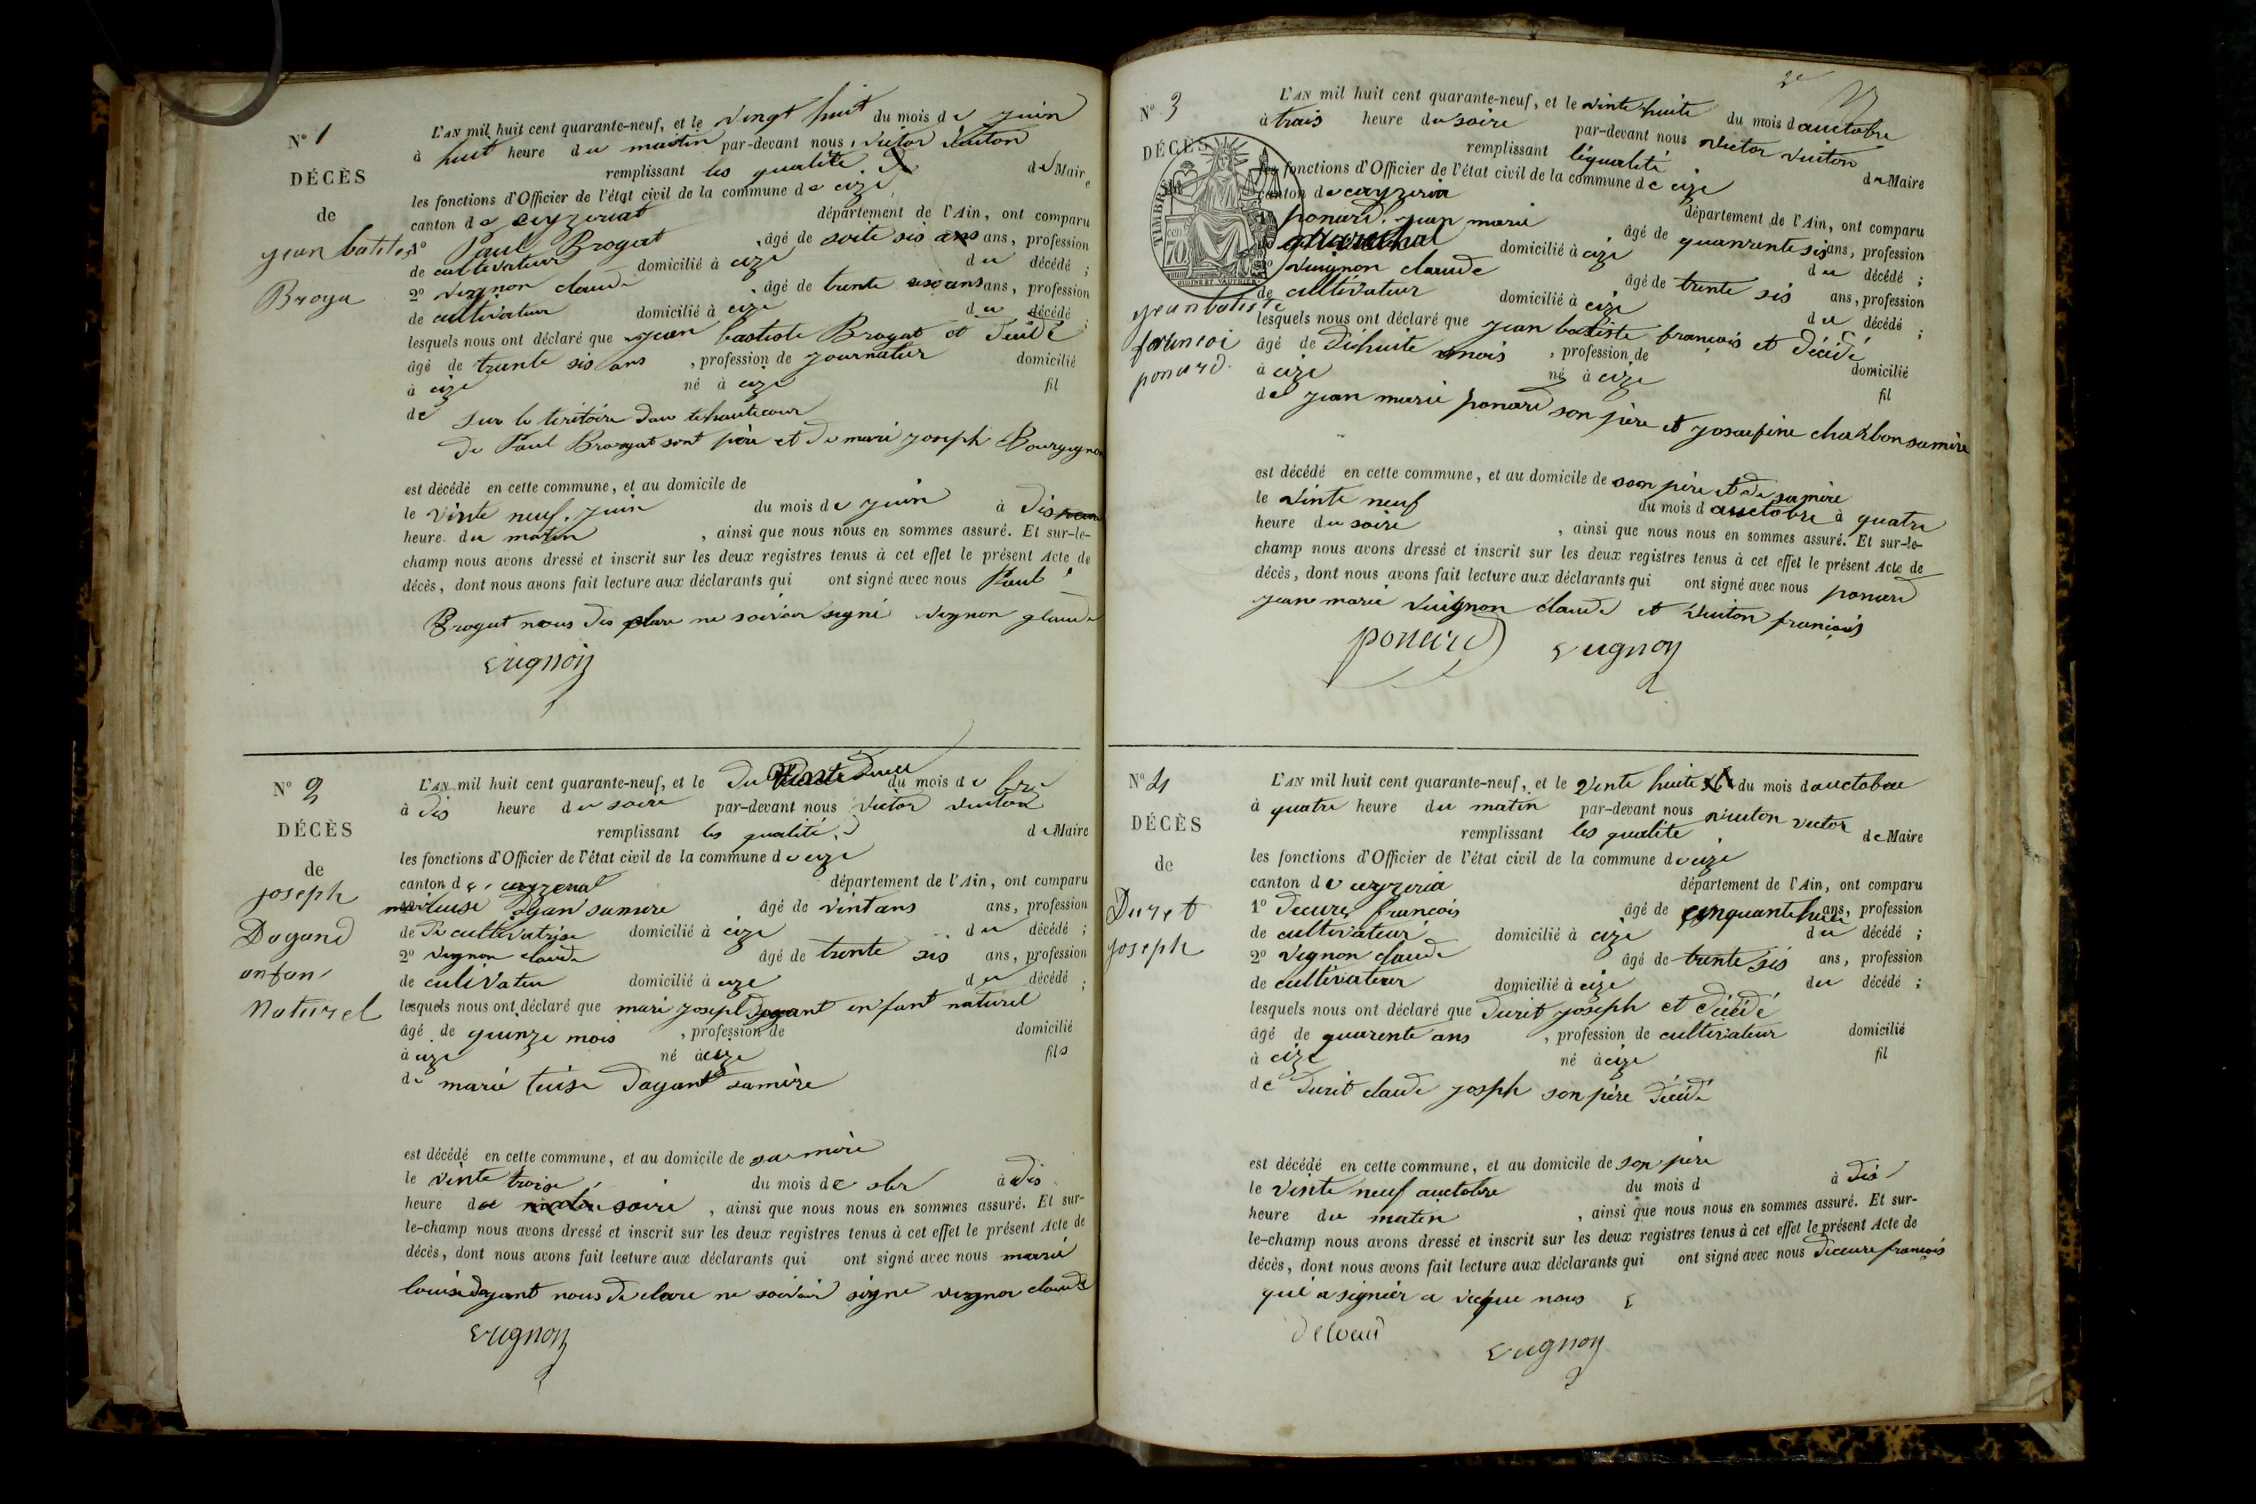 N° 1
DÉCÈS
de
jean batites
Broya
L'AN mil huit cent quarante-neuf, et le vingt huit du mois de juin
à huit heure du mastin par-devant nous, victor vuiton
remplissant les qualite de Maire
les fonctions d'Officier de l'état civil de la commune de cize
canton de ceyzeriat département de l'Ain, ont comparu
1° Paul Brogat, âgé de soite sis ans ans, profession
de cultivateur domicilié à cize du décédé ;
2° vugnon claude, âgé de trente sis ans ans, profession
de cultivateur domicilié à cize du décédé ;
lesquels nous ont déclaré que jean bastiste Brogat et décidé
âgé de trente sis ans, profession de journatur domicilié
à cize né à cize fil
de sur le teritoire dau tehautecour
de Paul Brogat sont père et de marie joseph Bourgignon
est décédé en cette commune, et au domicile de
le vinte neuf. juin du mois de juin à dis
heure du matin, ainsi que nous nous en sommes assuré. Et sur-le-
champ nous avons dressé et inscrit sur les deux registres tenus à cet effet le présent Acte de
décès, dont nous avons fait lecture aux déclarants qui ont signé avec nous Paul
Brogat nous dis clare ne savoir signé vugnon glaude
vugnon
N° 2
DÉCÈS
de
joseph
Dagand
anfan
Naturel
L'AN mil huit cent quarante-neuf, et le du mois de
à dis heure du soire par-devant nous victor vuiton
remplissant les qualité de Maire
les fonctions d'Officier de l'état civil de la commune de cize
canton de ceyzeriat département de l'Ain, ont comparu
samere âgé de vint ans ans, profession
de de cultivatrise domicilié à cize du décédé ;
2° vugnon claude âgé de trente sis ans, profession
de cultivateu domicilié à cize du décédé ;
lesquels nous ont déclaré que mari joseph dagant enfant naturel
âgé de quinze mois, profession de domicilié
à cize né à cize fils
de marie luise dagant samère
est décédé en cette commune, et au domicile de sa mère
le vinte troise du mois de à dis
heure du soire, ainsi que nous nous en sommes assuré. Et sur-
le-champ nous avons dressé et inscrit sur les deux registres tenus à cet effet le présent Acte de
décès, dont nous avons fait lecture aux déclarants qui ont signé avec nous marie
louise dagant nous de clare ne savoir signe vugnon claude
vugnon
2e
N° 3
DÉCÈS
TIMBRE
70
jean batiste
francoi
ponard
L'AN mil huit cent quarante-neuf, et le vinte huite du mois d auctobre
à trais heure du soire par-devant nous victor vuiton
remplissant léqualité de Maire
les fonctions d'Officier de l'état civil de la commune de cize
canton de ceyzeria département de l'Ain, ont comparu
ponard. jean marie âgé de quanrente sis ans, profession
domicilié à cize du décédé ;
2° vuignon claude âgé de trente sis ans, profession
de cultivateur domicilié à cize du décédé ;
lesquels nous ont déclaré que jean batiste françois et décidé
âgé de dihuite mois, profession de domicilié
à cize né à cize fil
de jean marie ponard son père et josaefine charbon samère
est décédé en cette commune, et au domicile de son père et de samère
le vinte neuf du mois d auctobre à quatre
heure du soire, ainsi que nous nous en sommes assuré. Et sur-le-
champ nous avons dressé et inscrit sur les deux registres tenus à cet effet le présent Acte de
décès, dont nous avons fait lecture aux déclarants qui ont signé avec nous ponard
jean marie vuignon claude et vuiton françois
ponard vugnon
N° 4
DÉCÈS
de
Duret
joseph
L'AN mil huit cent quarante-neuf, et le vente huite du mois d auctobre
à quatre heure du matin par-devant nous vuiton victor
remplissant les qualite de Maire
les fonctions d'Officier de l'état civil de la commune de cize
canton de ceyzeria département de l'Ain, ont comparu
1° françois âgé de cinquante huit ans, profession
de cultivateur domicilié à cize du décédé ;
2° vugnon claude âgé de trente sis ans, profession
de cultivateur domicilié à cize du décédé ;
lesquels nous ont déclaré que Duret joseph et décidé
âgé de quarente ans, profession de cultivateur domicilié
à cize né à cize fil
de Duret claude joseph son père décidé
est décédé en cette commune, et au domicile de son père
le vinte neuf auctobre du mois d à dis
heure du matin, ainsi que nous nous en sommes assuré. Et sur-
le-champ nous avons dressé et inscrit sur les deux registres tenus à cet effet le présent Acte de
décès, dont nous avons fait lecture aux déclarants qui ont signé avec nous françois
qui a signier a nous
vugnon